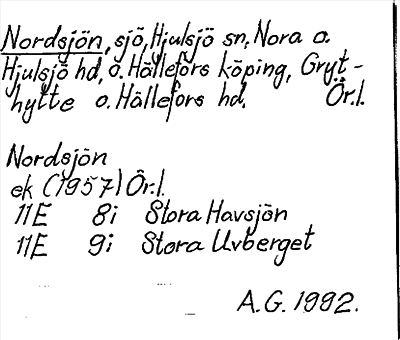 Nordsjön, sjö, Hjulsjö sn, Nora o.
Hjulsjö hd, o. Hällefors köping, Gryt-
hytte o. Hällefors hd. Ör.l.
Nordsjön
ek (1957) Ör.l.
11E 8i Stora Havsjön
11E 9i Stora Uvberget
A.G. 1992.